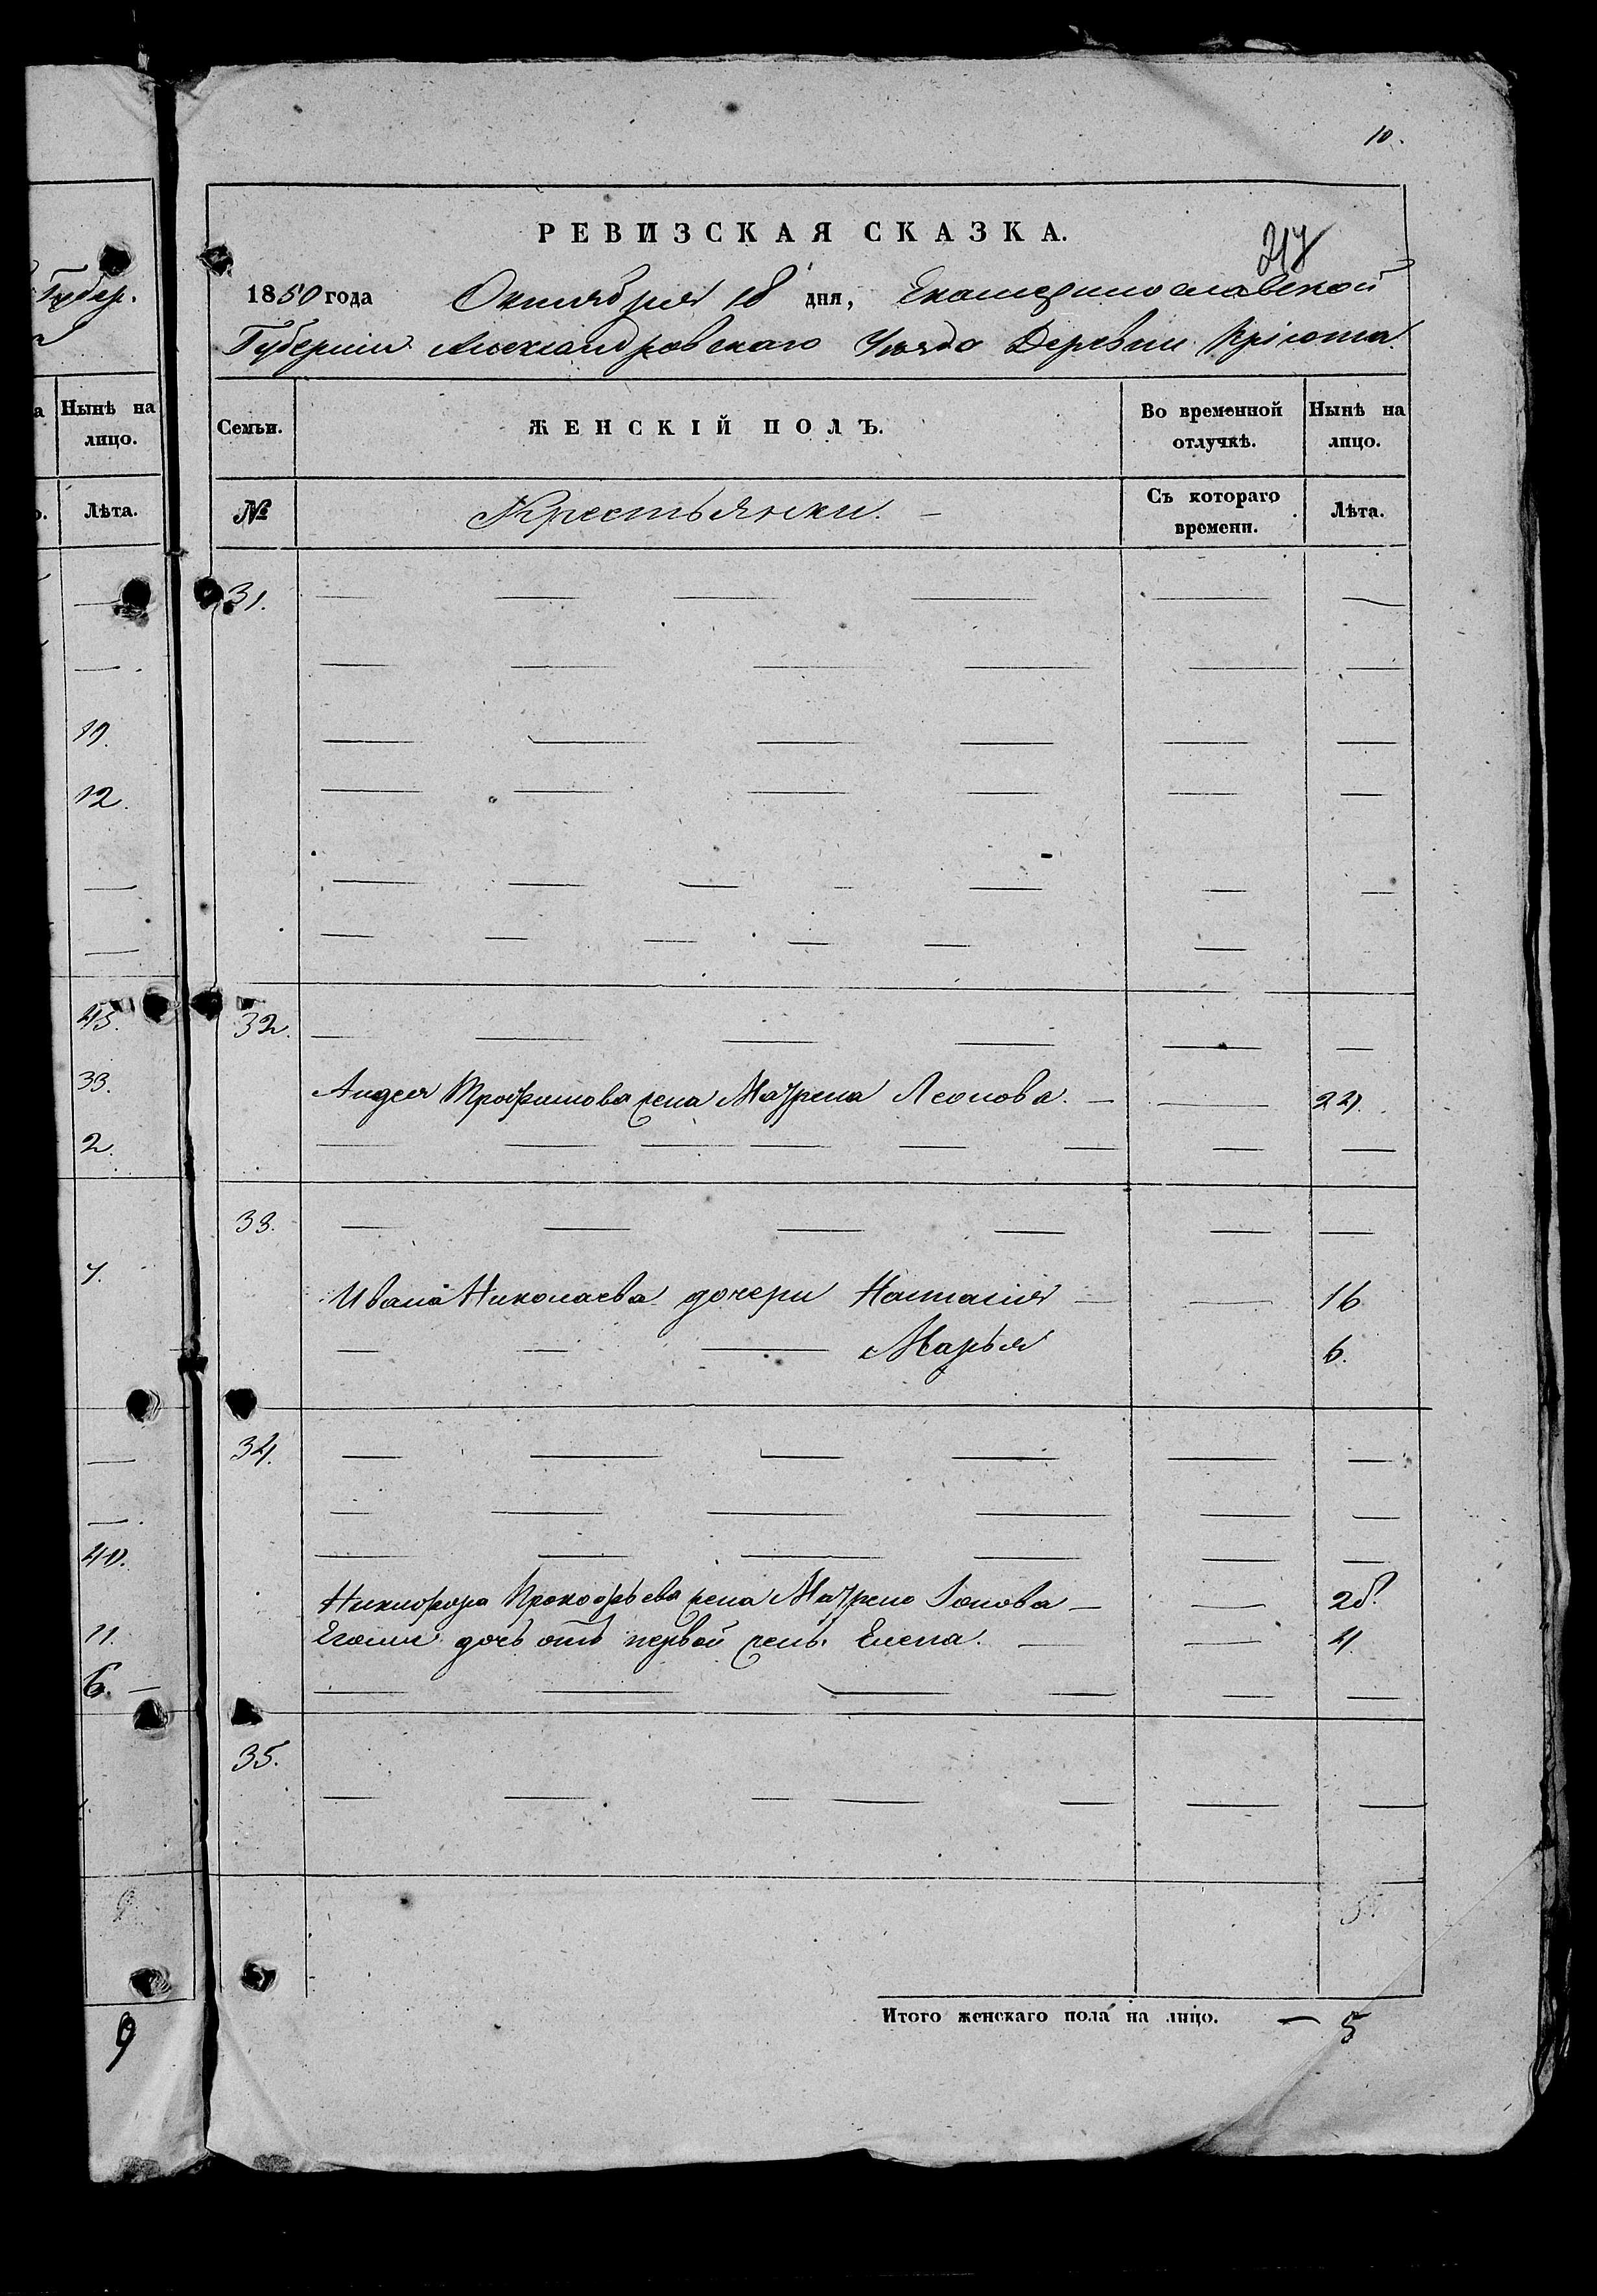 10.
РЕВИЗСКАЯ СКАЗКА.
217
1850 года Октября 18 дня, Екатеринославской
Губерніи Александровскаго Уѣзда Деревни Пріюта
Семьи. ЖЕНСКІЙ ПОЛЪ. Во временной отлучкѣ. Нынѣ на лицо.
№ Крестьянки. Съ котораго времени. Лѣта.
31.
32.
Андрея Трофимова жена Матрена Леонова. 24.
33.
Ивана Николаева дочери Наталія 16
Марья 6.
34.
Никифора Прокофьева жена Матрена Іонова 28.
Егоже дочь отъ первой жены Елена. 4.
35.
5.
Итого женскаго пола на лицо. — 5
Губер.
Нынѣ на лицо.
Лѣта.
19.
12.
43.
33.
2.
7.
40.
11.
6.
9
9